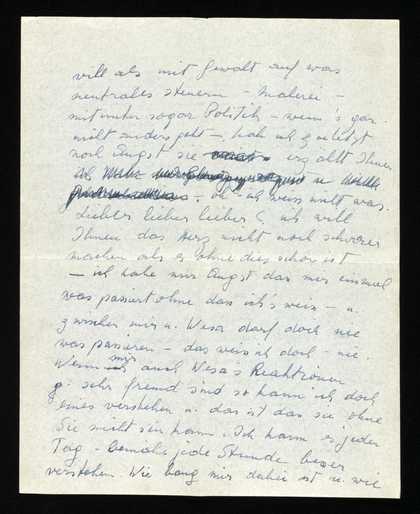 will als mit Gewalt auf was
neutrales steuern – Malerei –
mitunter sogar Politik – wenn's gar
nicht anders geht – hab ich zuletzt
noch Angst sie erzählt Ihnen
oh – ich weiss nicht was.
Lieber lieber lieber C ich will
Ihnen das Herz nicht noch schwerer
machen als es ohne dies schon ist
– ich habe nur Angst das mir einmal
was passiert ohne das ich's weis – u.
zwischen mir u. Wesa darf doch nie
was passieren – das weis ich doch – nie
Wenn mir auch Wesas Reaktionen
sehr fremd sind so kann ich doch
eines verstehen u. das ist das sie ohne
Sie nicht sein kann. Ich kann es jeden
Tag – beinahe jede Stunde besser
verstehen. Wie bang mir dabei ist u. wie